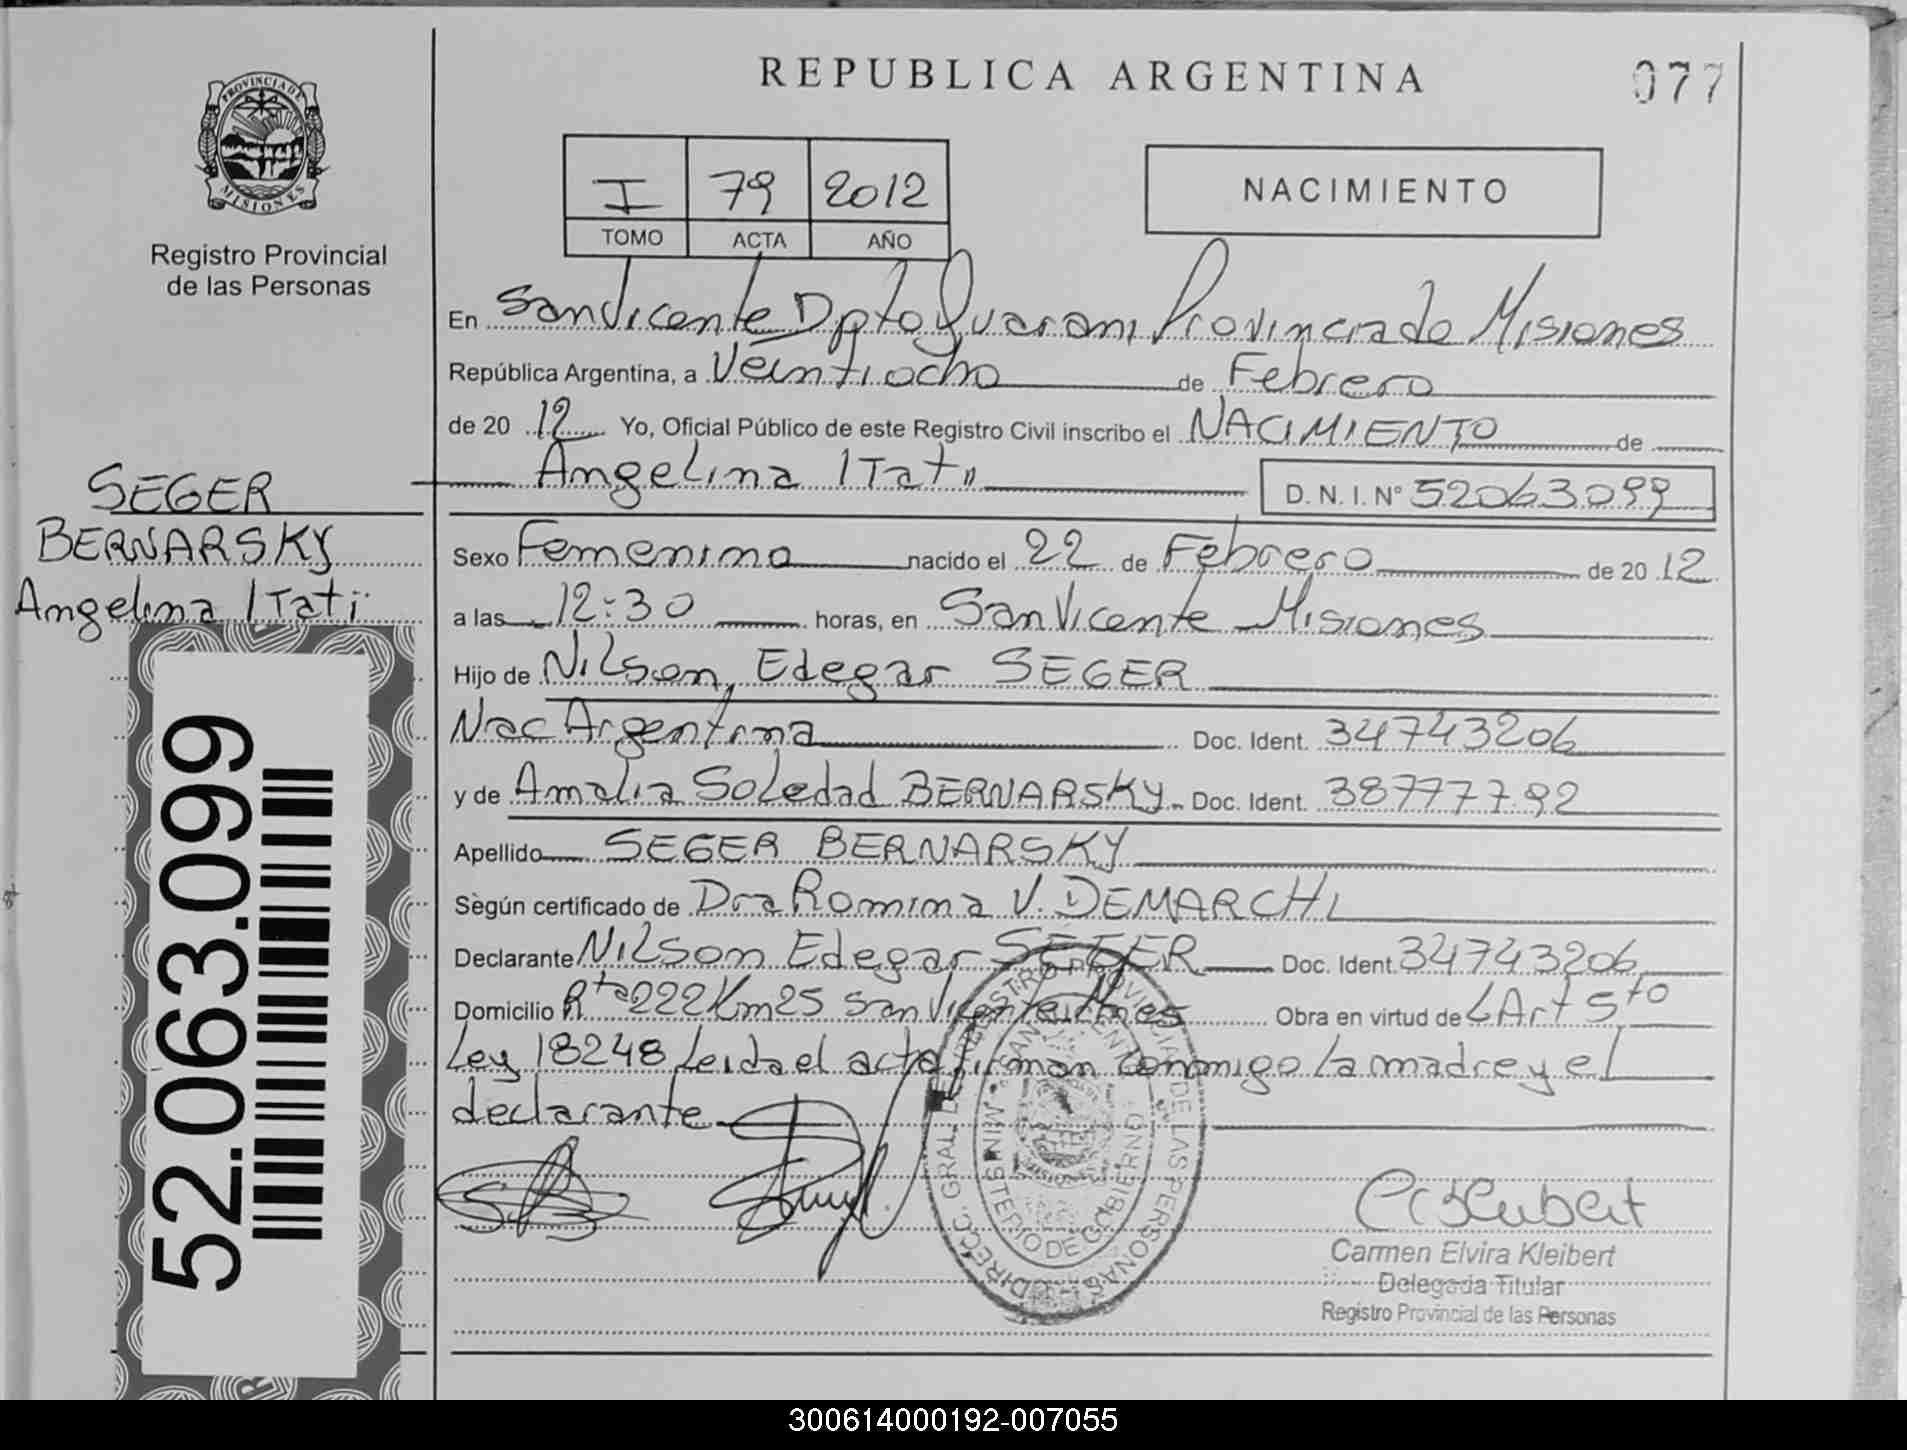 REPUBLICA ARGENTINA
077
PROVINCIA DE
MISIONES
Registro Provincial
de las Personas
I 79 2012
TOMO ACTA AÑO
NACIMIENTO
En San Vicente Dpto Guarani Provincia de Misiones
República Argentina, a Veintiocho de Febrero
de 20 12 Yo, Oficial Público de este Registro Civil inscribo el NACIMIENTO de
Angelina Itatii
D. N. I. Nº 52063099
SEGER
BERNARSKY
Angelina Itatí
Sexo Femenino nacido el 22 de Febrero de 20 12
a las 12:30 horas, en San Vicente Misiones
Hijo de Nilson Edegar SEGER
Nac Argentina Doc. Ident. 34743206
y de Amalia Soledad BERNARSKY Doc. Ident. 38777792
Apellido SEGER BERNARSKY
Según certificado de Dra Romina V. DEMARCHI
Declarante Nilson Edegar SEGER Doc. Ident. 34743206
Domicilio Rta 222 Km 25 San Vicente Mnes Obra en virtud de L Art 5to
Ley 18248 Leida el acta firman conmigo la madre y el
declarante
52.063.099
DIRECC. GRAL. DEL REGISTRO PROVINCIAL DE LAS PERSONAS
SAN VICENTE
MINISTERIO DE GOBIERNO
Carmen Elvira Kleibert
Delegada Titular
Registro Provincial de las Personas
300614000192-007055